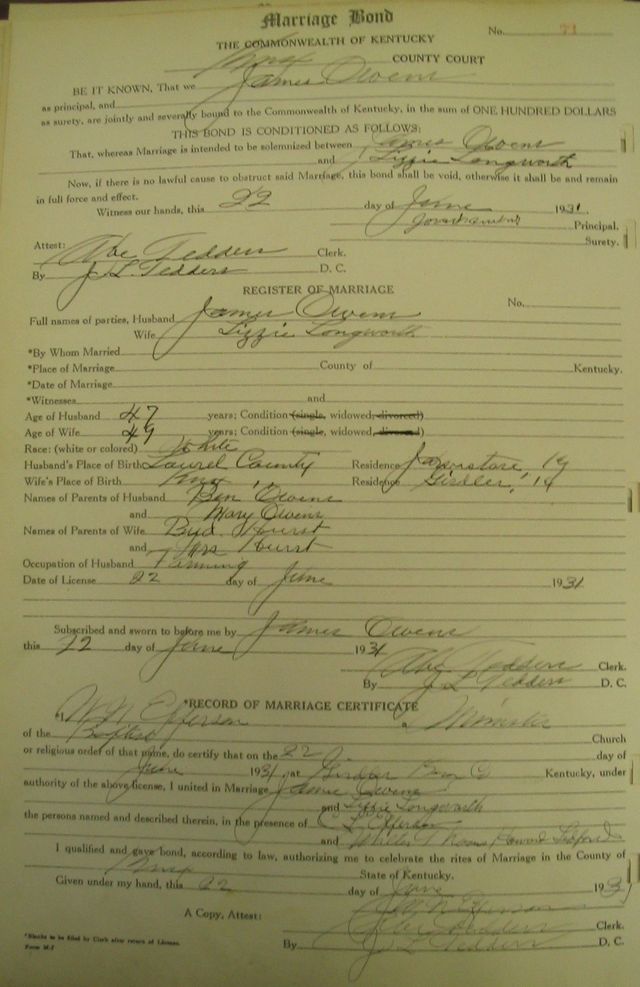 Marriage Bond
No. 71
THE COMMONWEALTH OF KENTUCKY
Knox COUNTY COURT
BE IT KNOWN, That we James Owens
as principal, and
as surety, are jointly and severally bound to the Commonwealth of Kentucky, in the sum of ONE HUNDRED DOLLARS
THIS BOND IS CONDITIONED AS FOLLOWS:
That, whereas Marriage is intended to be solemnized between James Owens
and Lizzie Longworth
Now, if there is no lawful cause to obstruct said Marriage, this bond shall be void, otherwise it shall be and remain
in full force and effect.
Witness our hands, this 22 day of June 1931
Principal,
Surety.
Attest:
Abe Tedders Clerk.
By J. L. Tedders D. C.
REGISTER OF MARRIAGE
No.
Full names of parties, Husband James Owens
Wife Lizzie Longworth
*By Whom Married
*Place of Marriage County of Kentucky.
*Date of Marriage
*Witnesses and
Age of Husband 47 years; Condition (single, widowed, divorced)
Age of Wife 49 years; Condition (single, widowed, divorced)
Race: (white or colored) White
Husband's Place of Birth Laurel County Residence Ky
Wife's Place of Birth Knox " Residence Girdler, Ky
Names of Parents of Husband Ben Owens
and Mary Owens
Names of Parents of Wife Bud Hurst
and Mrs Hurst
Occupation of Husband Farming
Date of License 22 day of June 1931
Subscribed and sworn to before me by James Owens
this 22 day of June 1931
Abe Tedders Clerk.
By J L Tedders D. C.
*RECORD OF MARRIAGE CERTIFICATE
*I W N Epperson a Minister
of the Baptist Church
or religious order of that name, do certify that on the 22 day of
June 1931 at Girdler Kentucky, under
authority of the above license, I united in Marriage Jamie Owens
and Lizzie Longworth
the persons named and described therein, in the presence of C L Epperson
and Howard Ledford
I qualified and gave bond, according to law, authorizing me to celebrate the rites of Marriage in the County of
Knox State of Kentucky.
Given under my hand, this 22 day of June 1931
W N Epperson
A Copy, Attest: Abe Tedders Clerk.
By J L Tedders D. C.
*Blanks to be filed by Clerk after return of License.
Form M-7